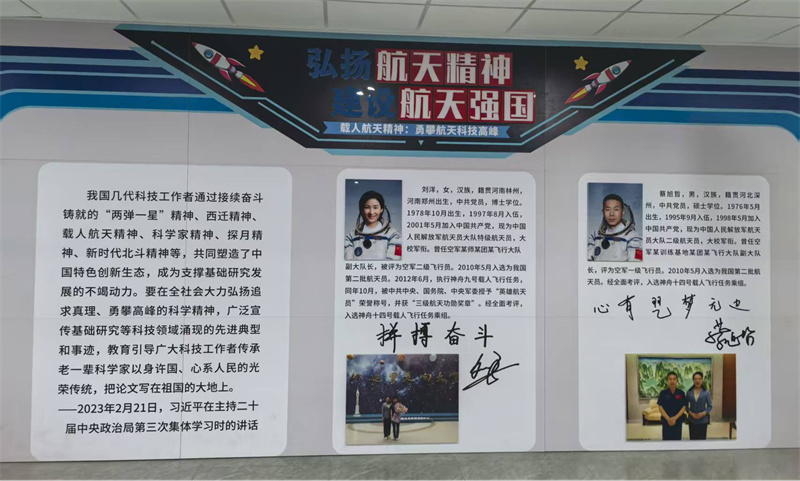 弘扬航天精神
建设航天强国
载人航天精神：勇攀航天科技高峰
我国几代科技工作者通过接续奋斗
铸就的“两弹一星”精神、西迁精神、
载人航天精神、科学家精神、探月精
神、新时代北斗精神等，共同塑造了中
国特色创新生态，成为支撑基础研究发
展的不竭动力。要在全社会大力弘扬追
求真理、勇攀高峰的科学精神，广泛宣
传基础研究等科技领域涌现的先进典型
和事迹，教育引导广大科技工作者传承
老一辈科学家以身许国、心系人民的光
荣传统，把论文写在祖国的大地上。
——2023年2月21日，习近平在主持二十
届中央政治局第三次集体学习时的讲话
刘洋，女，汉族，籍贯河南林州，
河南郑州出生，中共党员，博士学位。
1978年10月出生，1997年8月入伍，
2001年5月加入中国共产党，现为中国
人民解放军航天员大队特级航天员，大
校军衔。曾任空军某师某团某飞行大队
副大队长，被评为空军二级飞行员。2010年5月入选为我国
第二批航天员。2012年6月，执行神舟九号载人飞行任务，
同年10月，被中共中央、国务院、中央军委授予“英雄航天
员”荣誉称号，并获“三级航天功勋奖章”。经全面考评，
入选神舟十四号载人飞行任务乘组。
拼搏奋斗
蔡旭哲，男，汉族，籍贯河北深
州，中共党员，硕士学位。1976年5月
出生，1995年9月入伍，1998年5月加入
中国共产党，现为中国人民解放军航天
员大队二级航天员，大校军衔。曾任空
军某训练基地某团某飞行大队副大队
长，评为空军一级飞行员。2010年5月入选为我国第二批航
天员。经全面考评，入选神舟十四号载人飞行任务乘组。
心有 梦无边